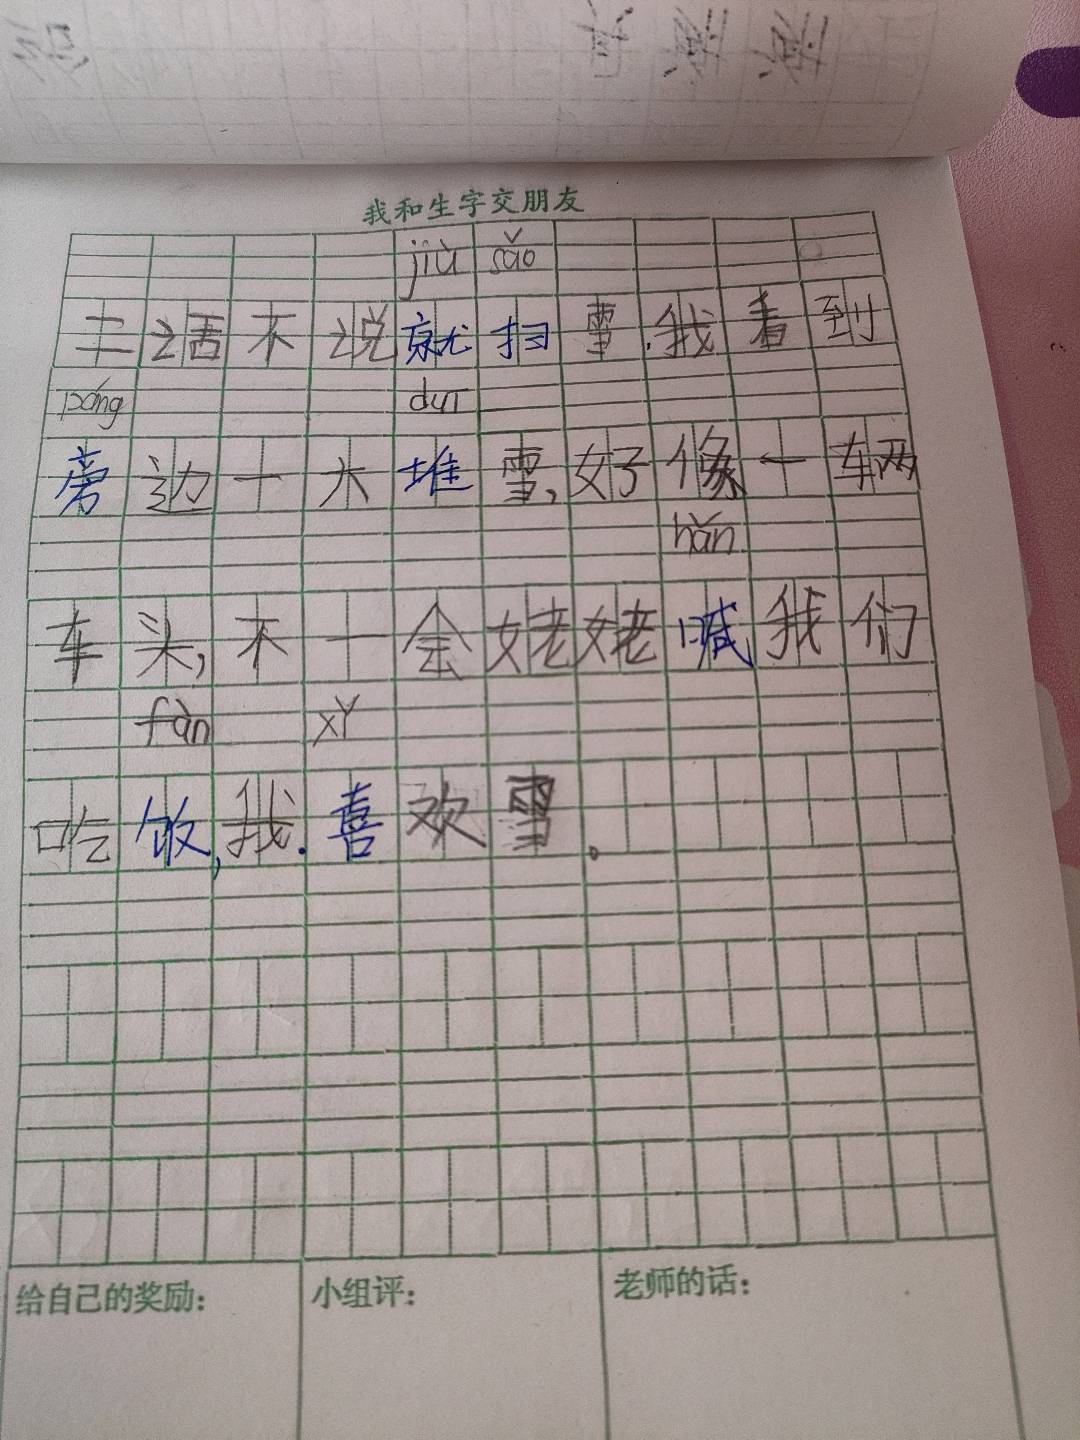 我和生字交朋友
jiù sǎo
二话不说就扫雪.我看到
páng duī
旁边一大堆雪,好像一辆
hǎn
车头,不一会姥姥喊我们
fàn xǐ
吃饭,我.喜欢雪。
给自己的奖励: 小组评: 老师的话: